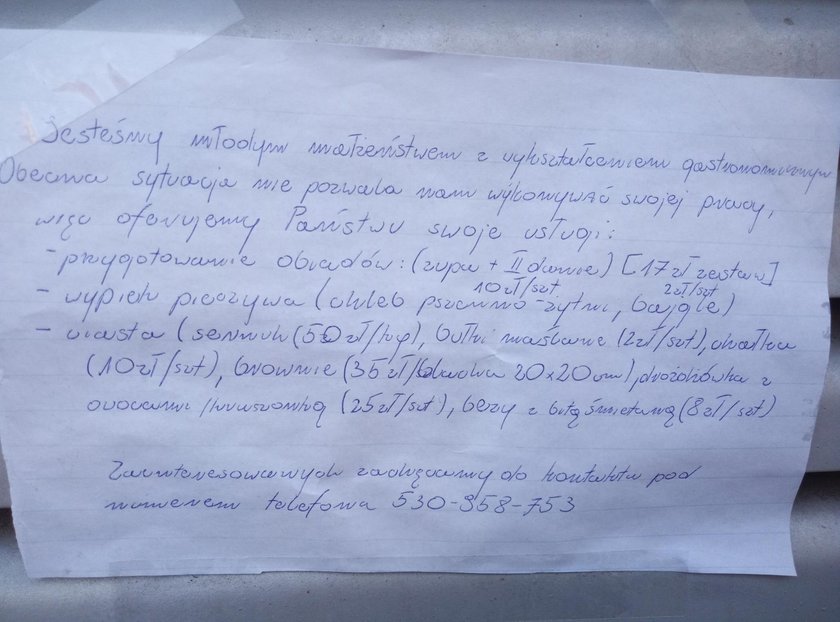 Jesteśmy młodym małżeństwem z wykształceniem gastronomicznym
Obecna sytuacja nie pozwala nam wykonywać swojej pracy,
więc oferujemy Państwu swoje usługi:
- przygotowanie obiadów: (zupa + II danie) [17 zł zestaw]
10 zł/szt 2 zł/szt
- wypiek pieczywa (chleb pszenno-żytni, bajgle)
- ciasta (sernik (50 zł/kg), bułki maślane (2 zł/szt), chałka
(10 zł/szt), brownie (35 zł/blaszka 20x20 cm), drożdżówka z
owocami /kruszonką (25 zł/szt), bezy z bitą śmietaną (8 zł/szt)
Zainteresowanych zachęcamy do kontaktu pod
numerem telefonu 530-958-753